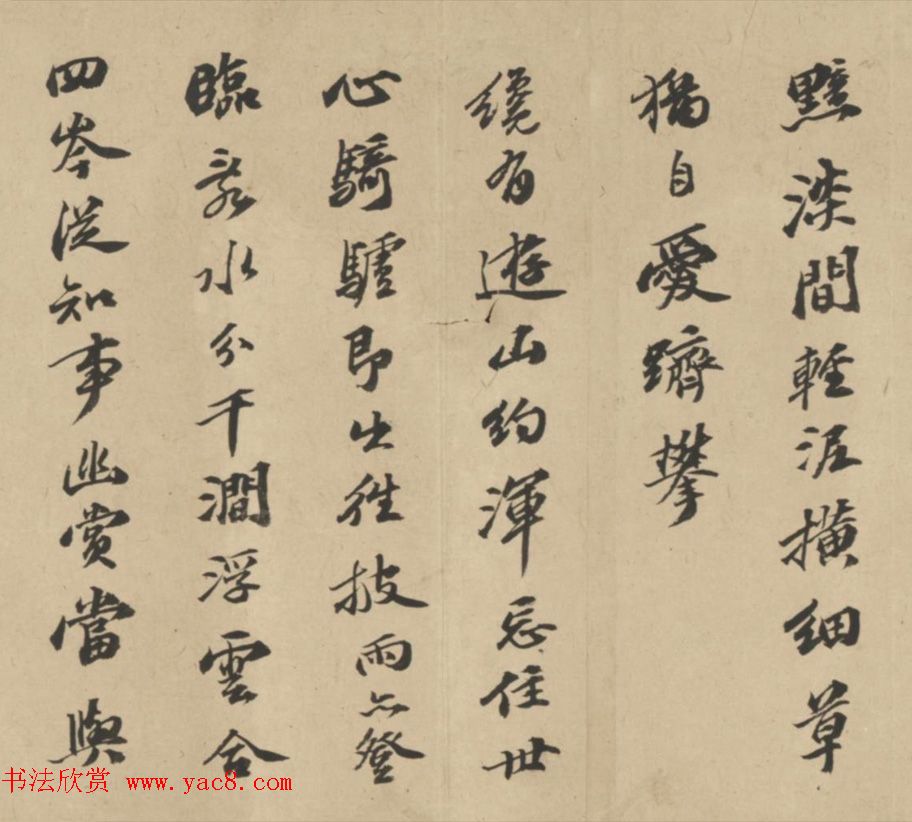 點染間輕泥橫細草
猶自愛躋攀
纔有遊山約渾忘住世
心騎驢即出往披雨亦登
臨亂水分千澗浮雲合
四岑從知事幽賞當與
书法欣赏 www.yac8.com